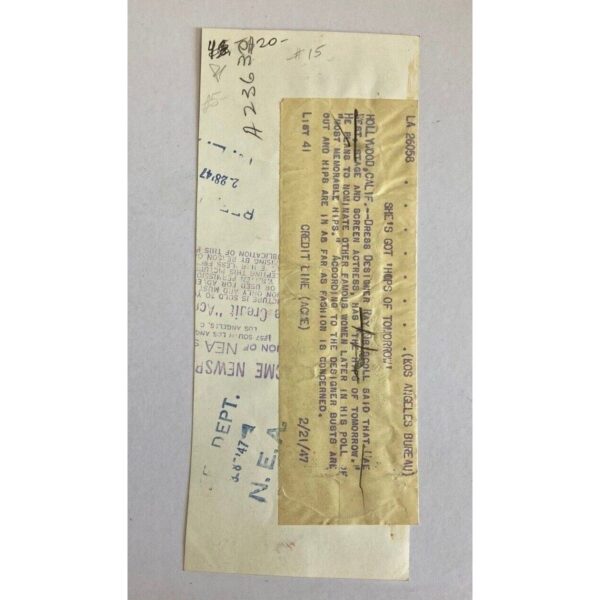 LA 26058 . . . . . . . . (KOS ANGELES BUREAU)
SHE'S GOT 'HOPS OF TOMORROW'
HOLLYWOOD, CALIF.--DRESS DESIGNER RAY DRISCOLL SAID THAT MAE
WEST, STAGE AND SCREEN ACTRESS, HAS "THE HIPS OF TOMORROW."
HE PLANS TO NOMINATE OTHER FAMOUS WOMEN LATER IN HIS POLL OF
"MOST MEMORABLE HIPS." ACCORDING TO THE DESIGNER BUSTS ARE
OUT AND HIPS ARE IN AS FAR AS FASHION IS CONCERNED.
LIST 41 CREDIT LINE (ACME) 2/21/47
#20-
#15
A 2363
2.28'47
PICTURE IS SOLD TO Y
Credit "Ac
LOS ANGELES, C
ION OF NEA S
ME NEWSP
DEPT.
N.E.A.